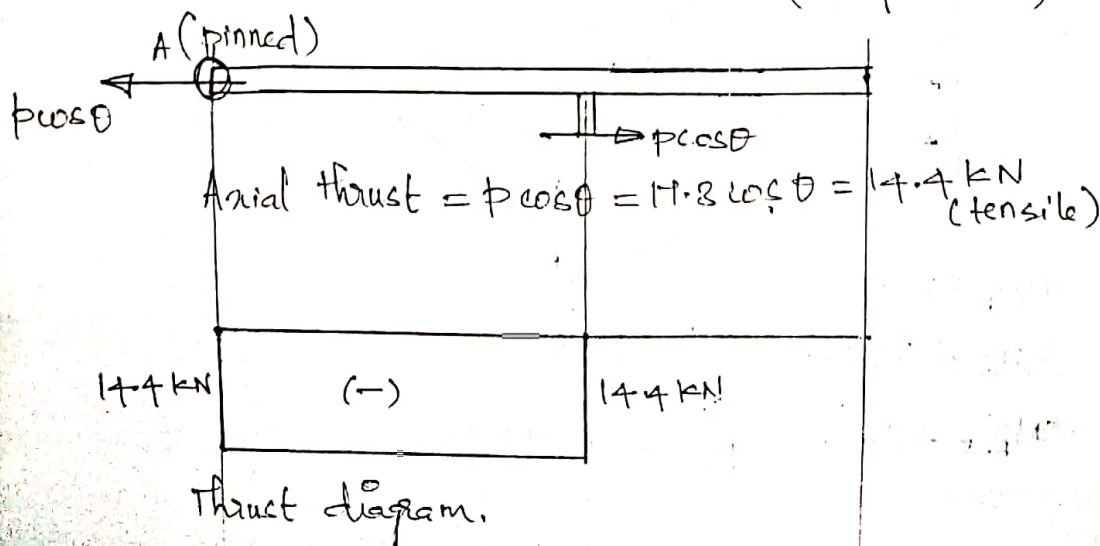 A (pinned)
pcosθ
pcosθ
Axial thrust = pcosθ = 17.8 cosθ = 14.4 kN
(tensile)
14.4 kN
(-)
14.4 kN
Thrust diagram.